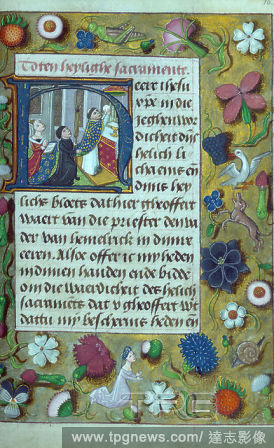 Toten heylighe sacramente
heere ihesu
xpe in die
ieghenwo
dicheit dijs
helich li
chaems en
dinis hey
lichs bloets dat hier gheoffert
waert van die priester den va
der van hemelrick in dinre
eeren. Alsoe offer ic my heden
in dinen handen ende bidde
om die waerdicheit des helich
sacramets dat v gheoffert wt
dattu my bescharmes heden en
www.tpgnews.com/ 達志影像